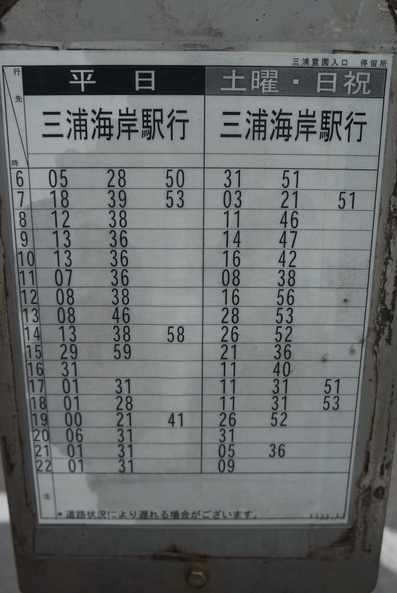 三浦霊園入口 停留所
行先 平日 土曜・日祝
三浦海岸駅行 三浦海岸駅行
時
6 05 28 50 31 51
7 18 39 53 03 21 51
8 12 38 11 46
9 13 36 14 47
10 13 36 16 42
11 07 36 08 38
12 08 38 16 56
13 08 46 28 53
14 13 38 58 26 52
15 29 59 21 36
16 31 11 40
17 01 31 11 31 51
18 01 28 11 31 53
19 00 21 41 26 52
20 06 31 31
21 01 31 05 36
22 01 31 09
注
*道路状況により遅れる場合がございます。